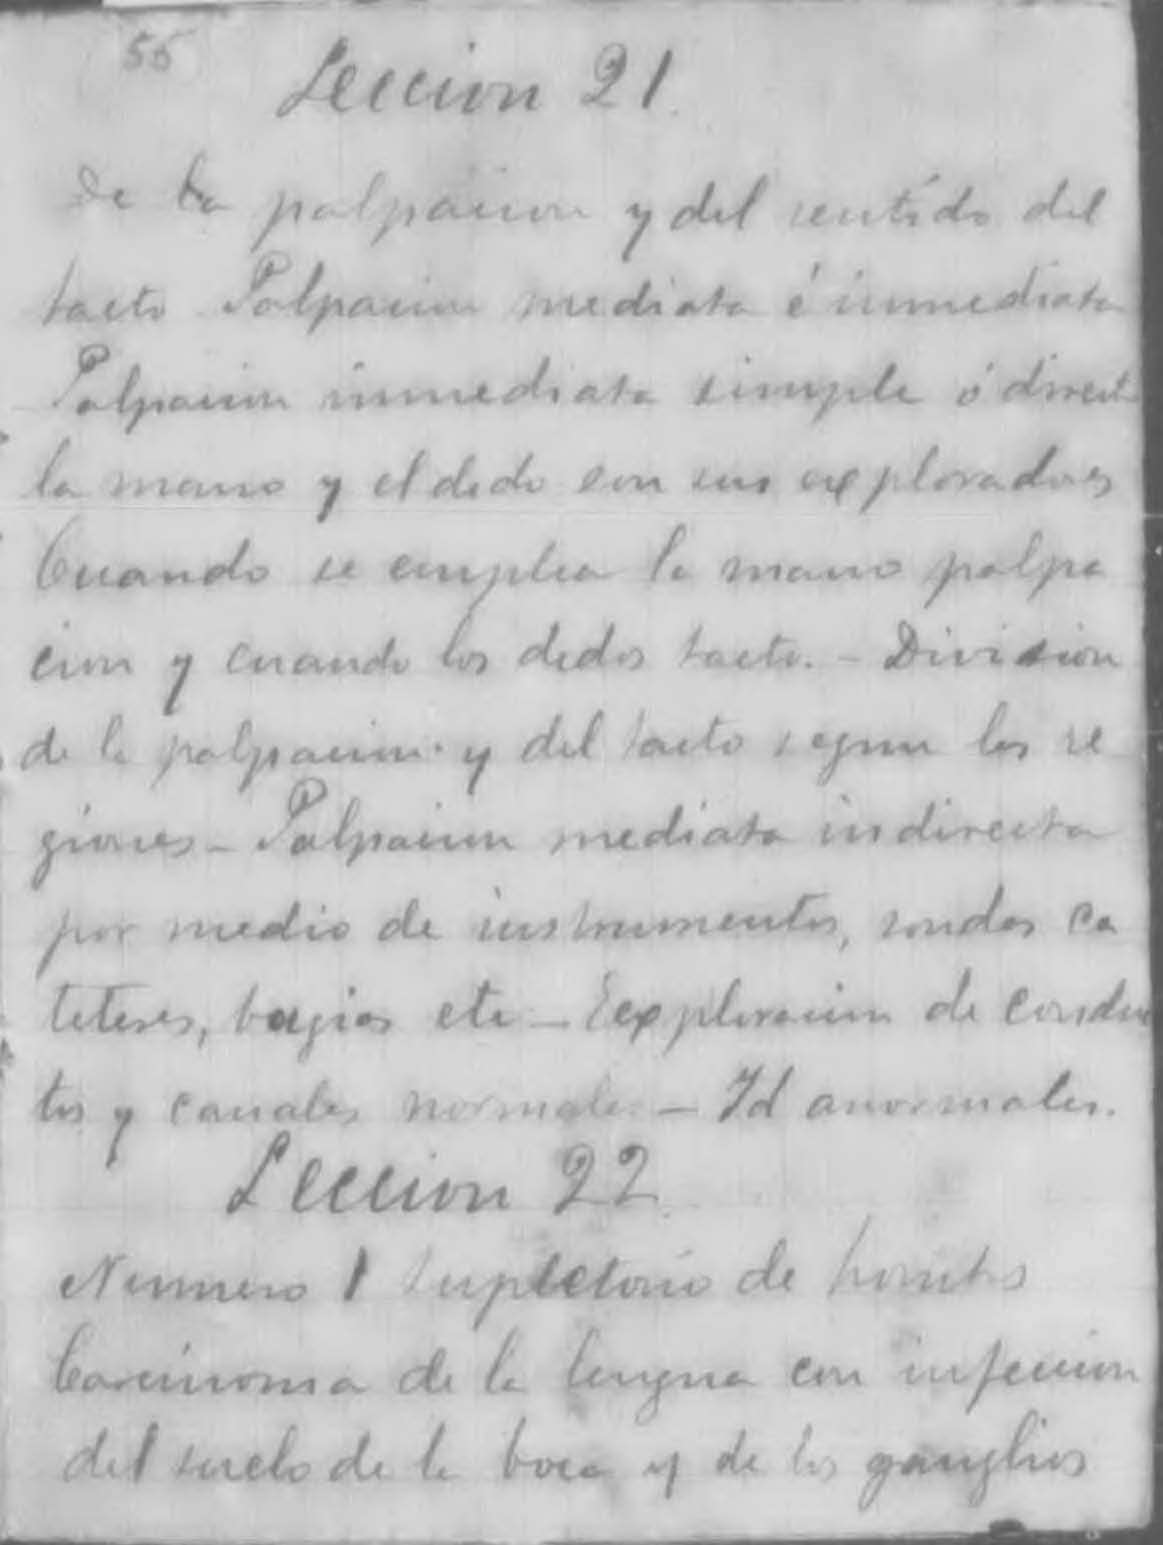 55
Leccion 21.
De la palpacion y del sentido del
tacto Palpacion mediata é inmediata
Palpacion inmediata simple ó directa
la mano y el dedo son sus exploradores
Cuando se emplea la mano palpa
cion y cuando los dedos tacto. - Division
de la palpacion y del tacto segun las re
giones - Palpacion mediata indirecta
por medio de instrumentos, sondas ca
teteres, bugias etc - Exploracion de conduc
tos y canales normales - Id anormales.
Leccion 22
Numero 1 supletorio de
Carcinoma de la lengua con infeccion
del suelo de la boca y de los ganglios